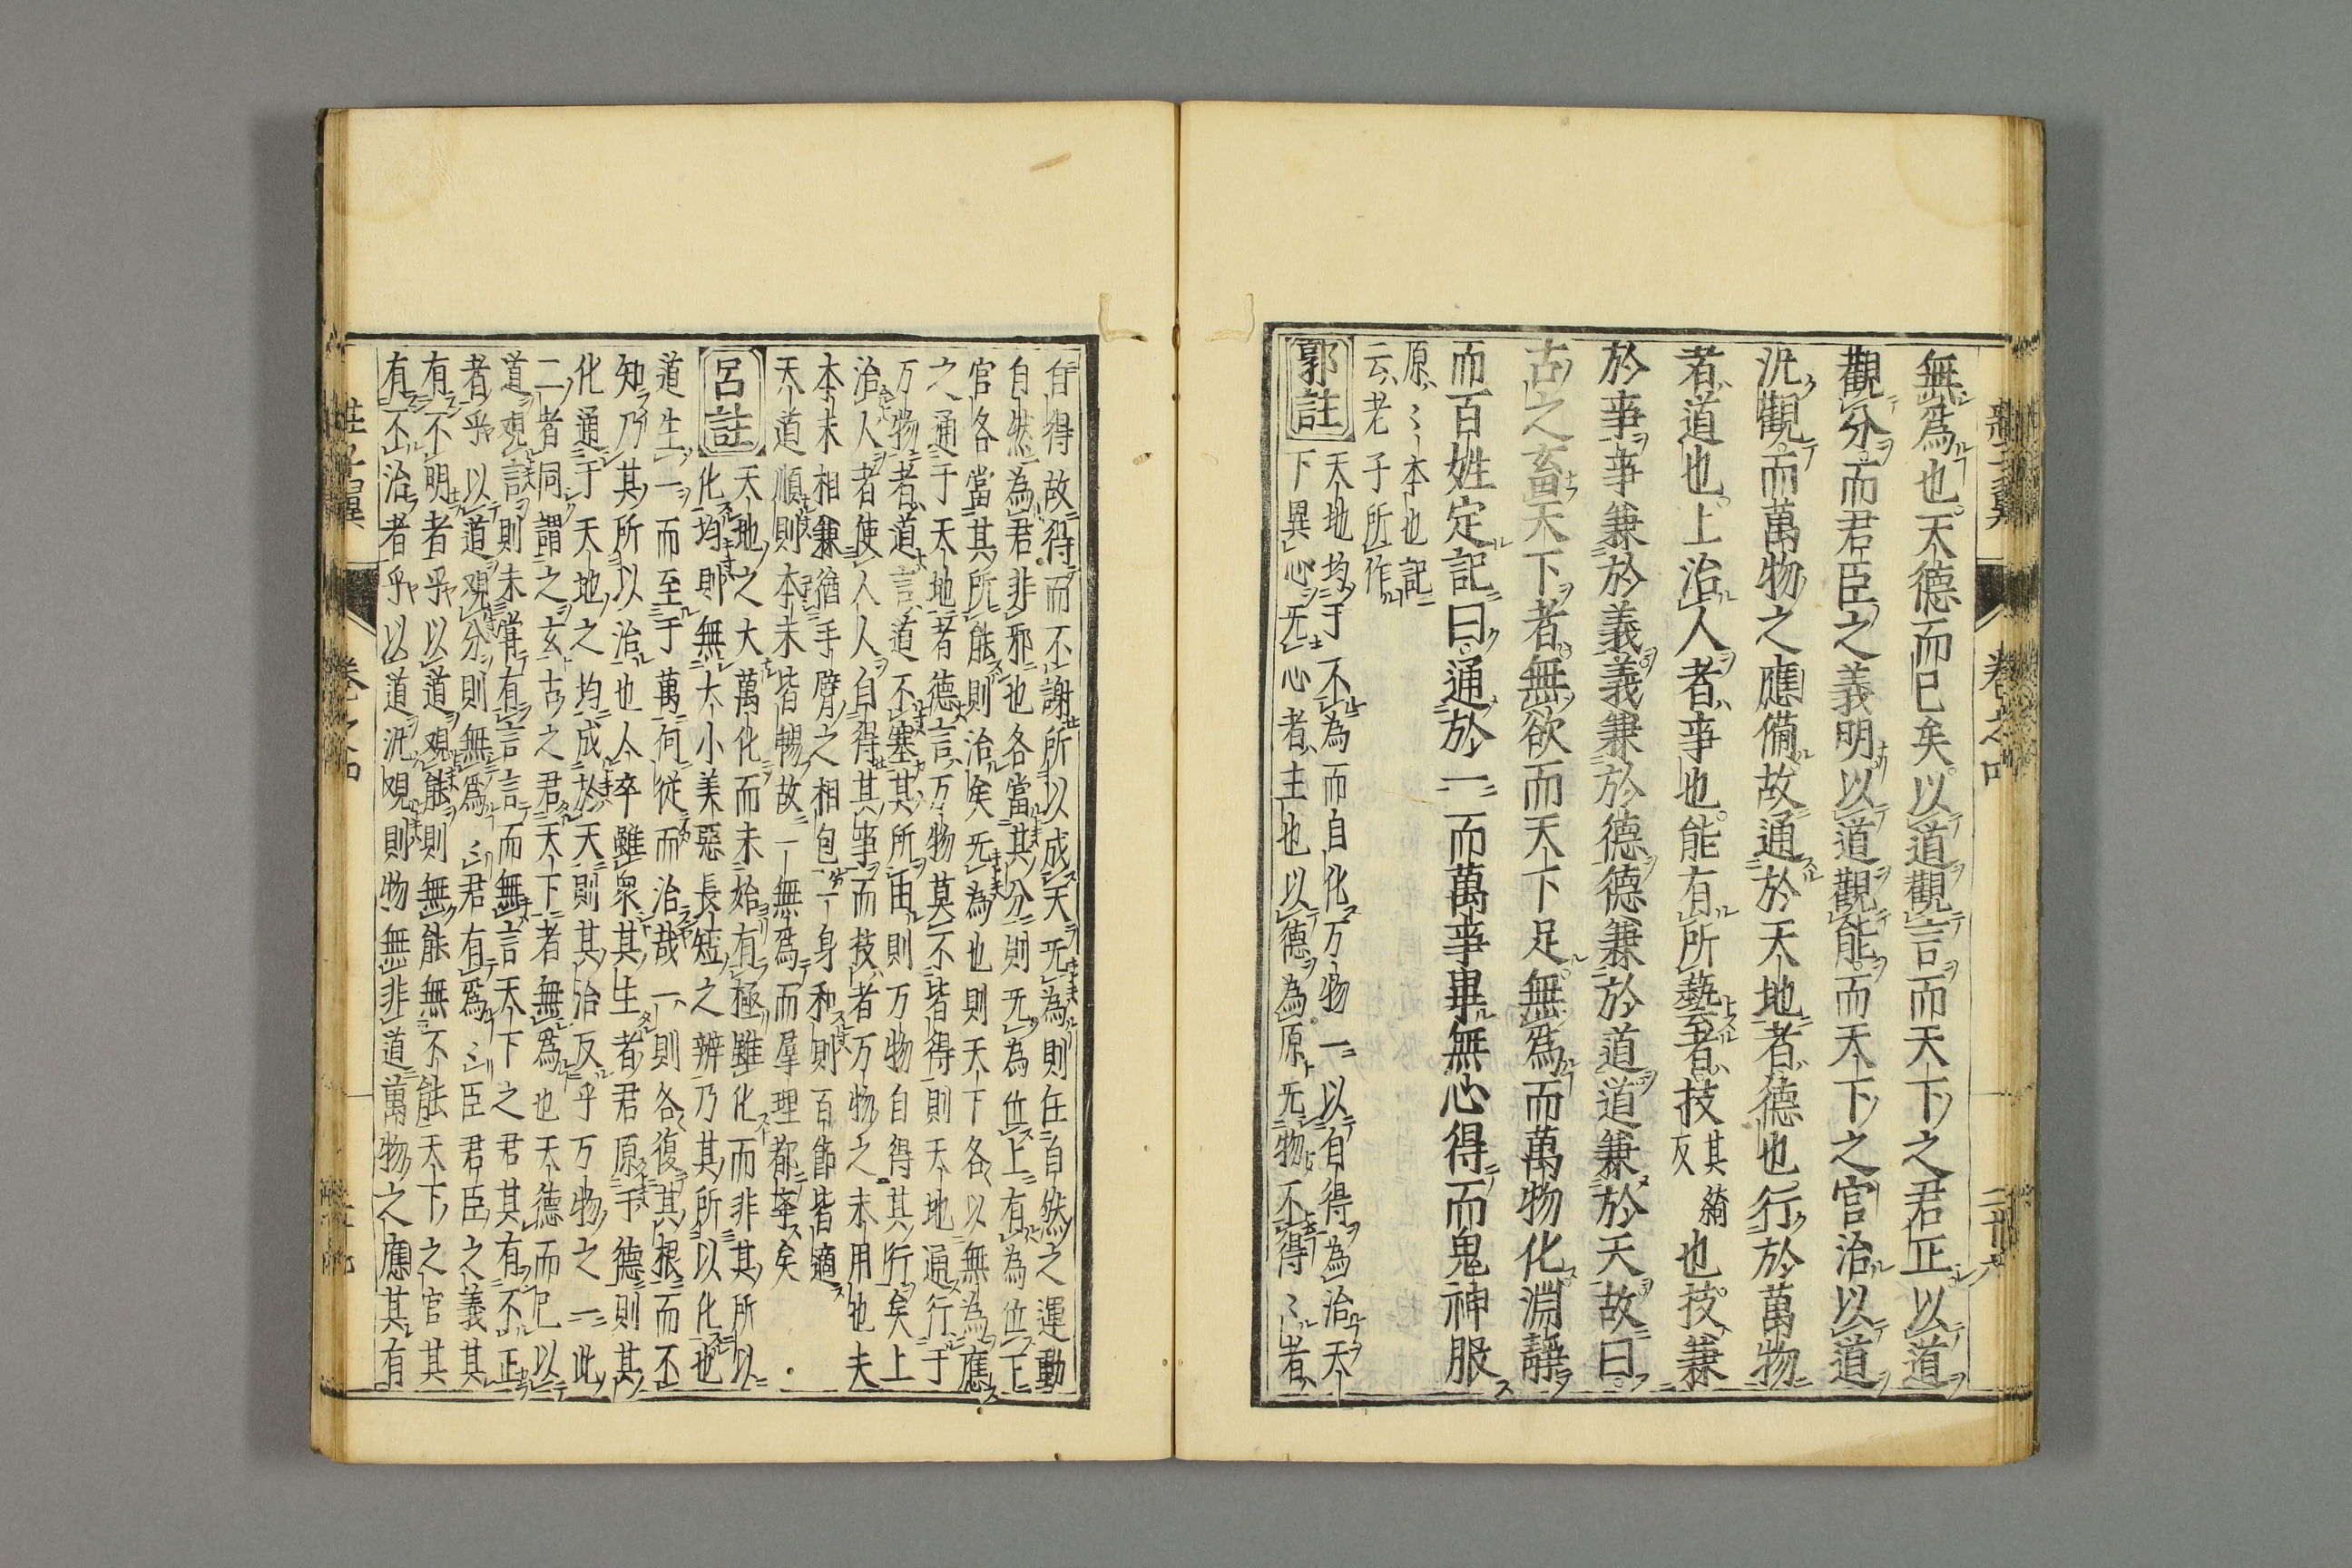 無爲也天德而已矣以道觀言而天下之君正以道
觀分而君臣之義明以道觀能而天下之官治以道
汎觀而萬物之應備故通於天地者德也行於萬物
者道也上治人者事也能有所藝者技其綺反也技兼
於事事兼於義義兼於德德兼於道道兼於天故曰
古之畜天下者無欲而天下足無爲而萬物化淵靜
而百姓定記曰通於一而萬事畢無心得而鬼神服
原原〻本也記
云老子所作
郭註
天地均于不為而自化万物一以自得為治天
下異心无心者主也以德為原无物不得〻者
自得故得而不謝所以成天无為則任自然之運動
自然為君非邪也各當其分則无為位上有為位下
官各當其所能則治矣无為也則天下各以無為應
之通于天地者德言万物莫不皆得則天地通行于
万物者道言道不塞其所由則万物自得其行矣上
治人者使人人自得其事而技者万物之末用也夫
本末相兼猶手臂之相包一身和則百節皆適
天道順則本末皆暢故一無爲而羣理都舉矣
呂註
天地之大萬化而未始有極雖化而非其所以
化均則無大小美惡長短之辨乃其所以化也
道生一一而至于萬何從而治哉一則各復其根而不
知乃其所以治也人卒雖衆其生者君原于德則其
化通于天地之均成於天則其治反乎万物之一此
二者同謂之玄古之君天下者無爲也天德而已以
道觀言則未甞有言言而無言天下之君其有不正
者乎以道觀分則無爲君有爲臣君臣之義其
有不明者乎以道觀能則無能無不能天下之官其
有不治者乎以道汎觀則物無非道萬物之應其有